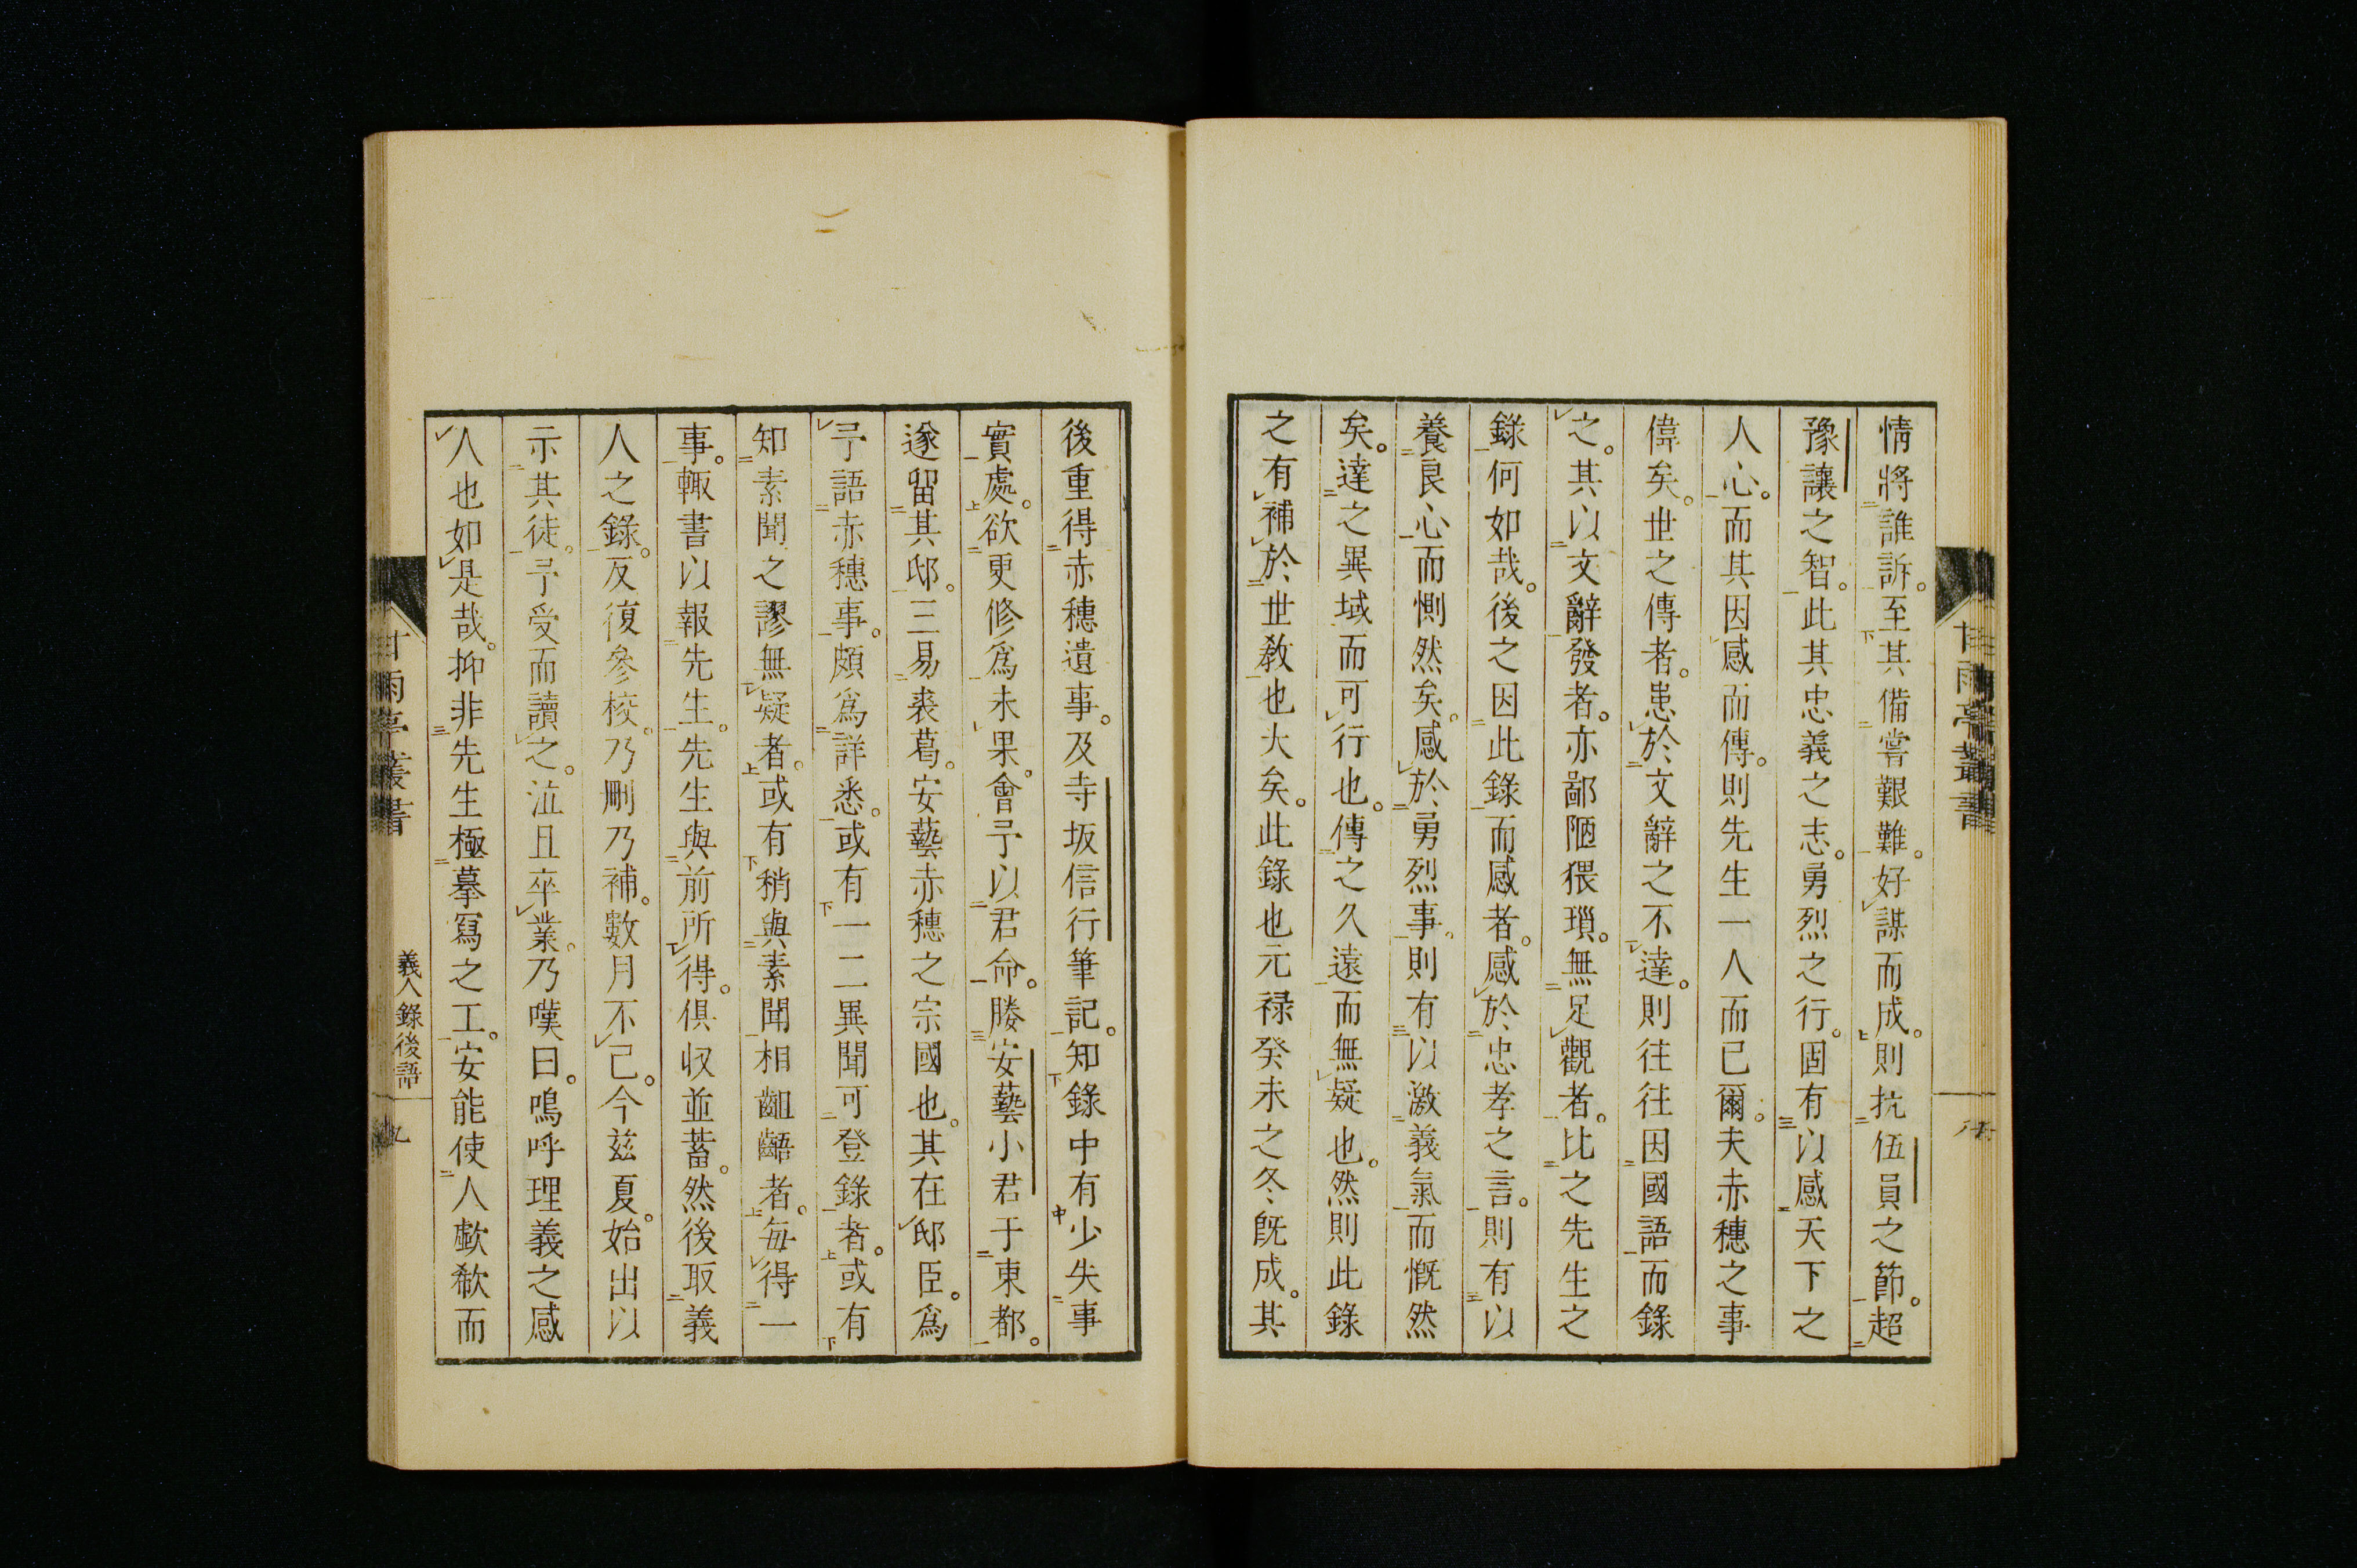 情將誰訴。至其備嘗艱難。好謀而成。則抗伍員之節。超
豫讓之智。此其忠義之志。勇烈之行。固有以感天下之
人心。而其因感而傳。則先生一人而已爾。夫赤穗之事
偉矣。世之傳者。患於文辭之不達。則往往因國語而錄
之。其以文辭發者。亦鄙陋猥瑣。無足觀者。比之先生之
錄何如哉。後之因此錄而感者。感於忠孝之言。則有以
養良心而惻然矣。感於勇烈事。則有以激義氣而慨然
矣。達之異域而可行也。傳之久遠而無疑也。然則此錄
之有補於世教也大矣。此錄也元禄癸未之冬既成。其
後重得赤穗遺事。及寺坂信行筆記。知錄中有少失事
實處。欲更修爲未果。會予以君命。媵安藝小君于東都。
遂留其邸。三易裘葛。安藝赤穗之宗國也。其在邸臣。爲
予語赤穗事。頗爲詳悉。或有一二異聞可登錄者。或有
知素聞之謬無疑者。或有稍與素聞相齟齬者。每得一
事。輙書以報先生。先生與前所得。俱収並蓄。然後取義
人之錄。反復參校。乃刪乃補。數月不已。今茲夏。始出以
示其徒。予受而讀之。泣且卒業。乃嘆曰。嗚呼理義之感
人也如是哉。抑非先生極摹寫之工。安能使人歔欷而
甘雨亭叢書
義人錄後語
九